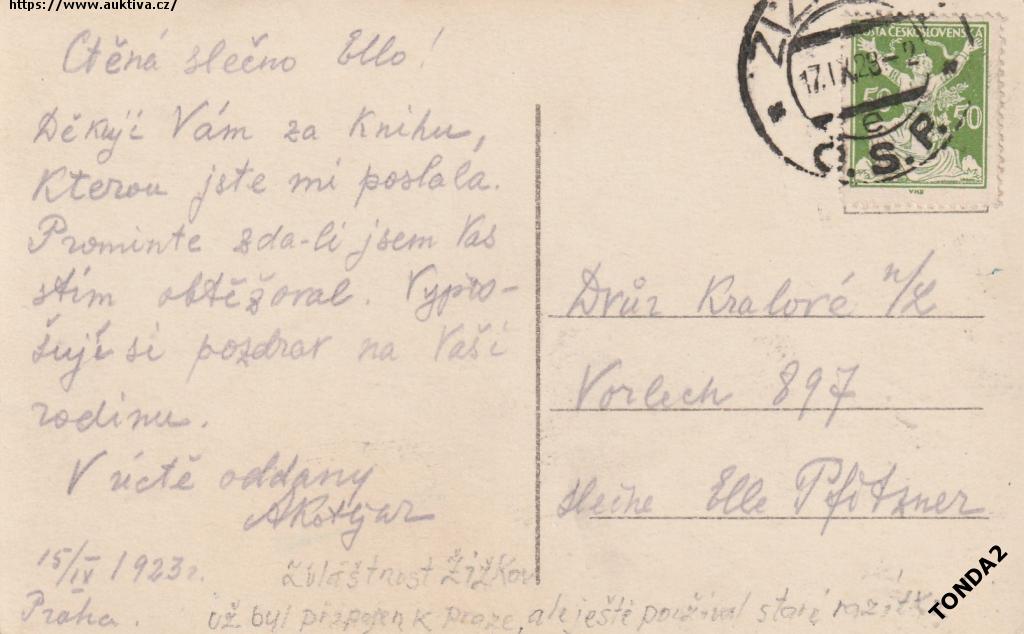 https://www.auktiva.cz/
Ctěná slečno Ello!
Děkuji Vám za Knihu,
Kterou jste mi poslala.
Prominte zda-li jsem Vas
stím obtěžoval. Vypro-
šuji si pozdrav na Vaší
rodinu.
V úctě oddaný
15/IV 1923.
Praha.
ŽIŽ
17.IX.23-2
e
Č.S.P.
POŠTA ČESKOSLOVENSKÁ
50 50
Dvůr Kralové n/L
Vorlech 897
slečně Elle Pfitzner
Zvláštnost Žižkov
už byl připojen k Praze, ale ještě používal staré razítko
TONDA2